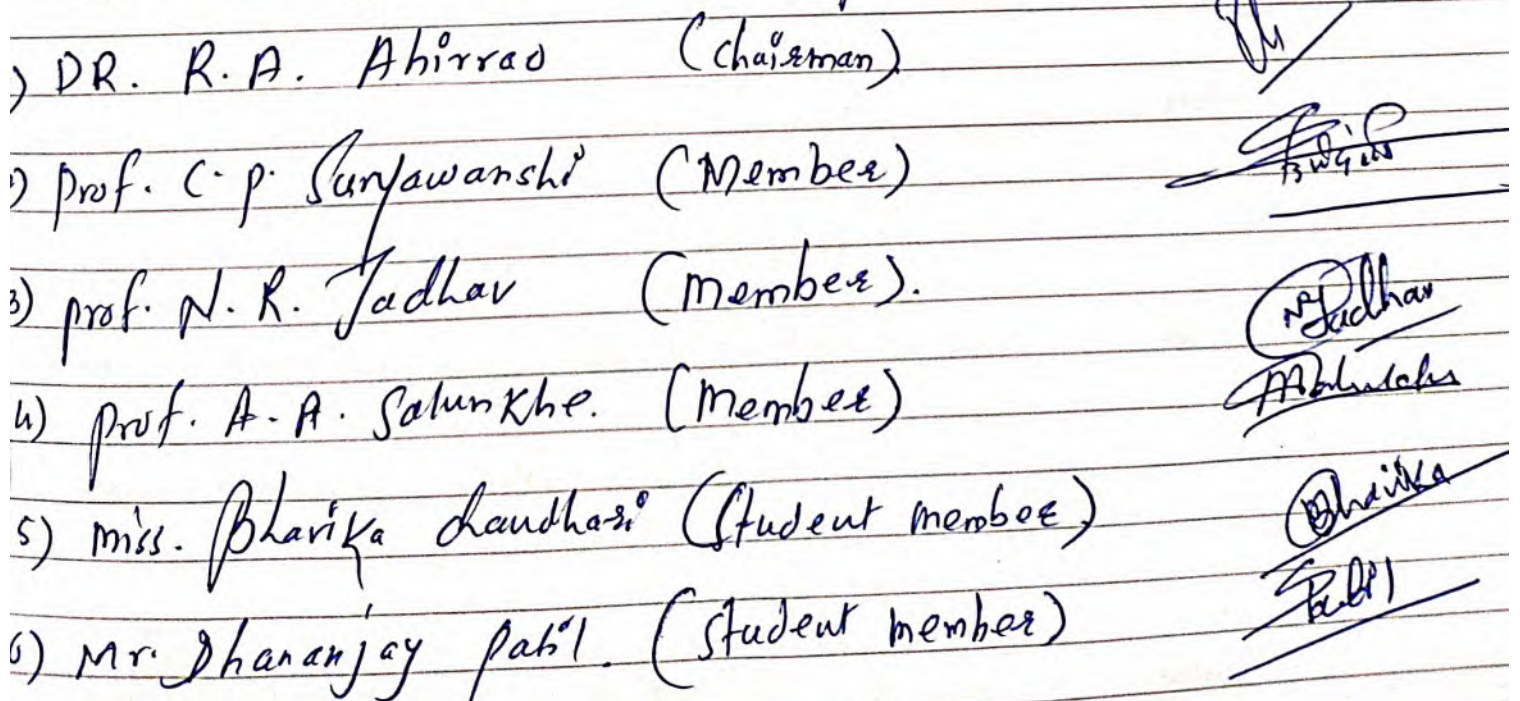 ) DR. R. A. Ahirrao (Chairman)
) Prof. C. P. Suryawanshi (Member)
3) Prof. N. R. Jadhav (Member). NRJadhav
4) Prof. A. A. Salunkhe. (Member)
5) Miss. Bhavika Chaudhari (Student member) Bhavika
6) Mr. Dhananjay Patil. (Student member) Patil